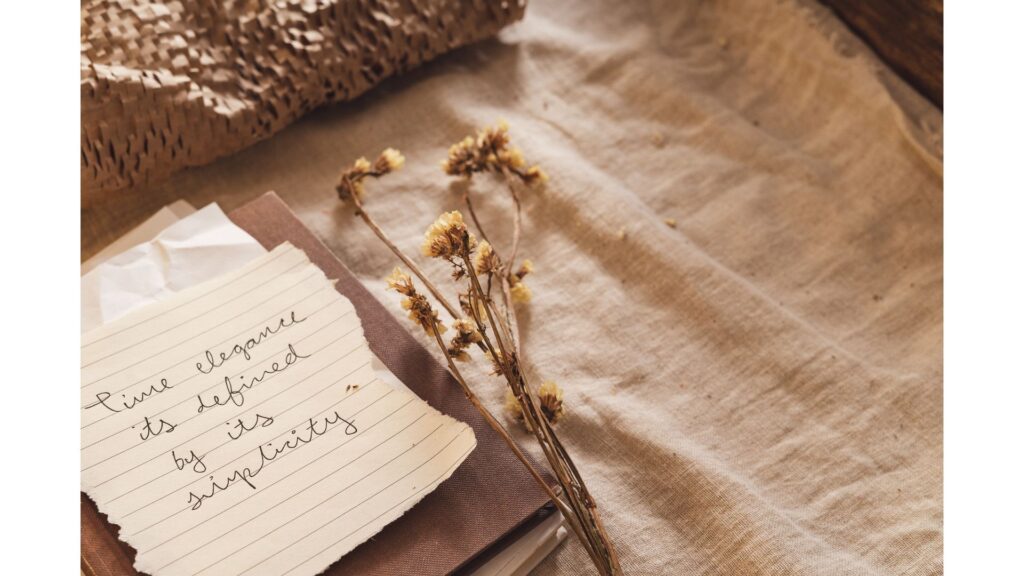 time elegance
its defined
by its
simplicity